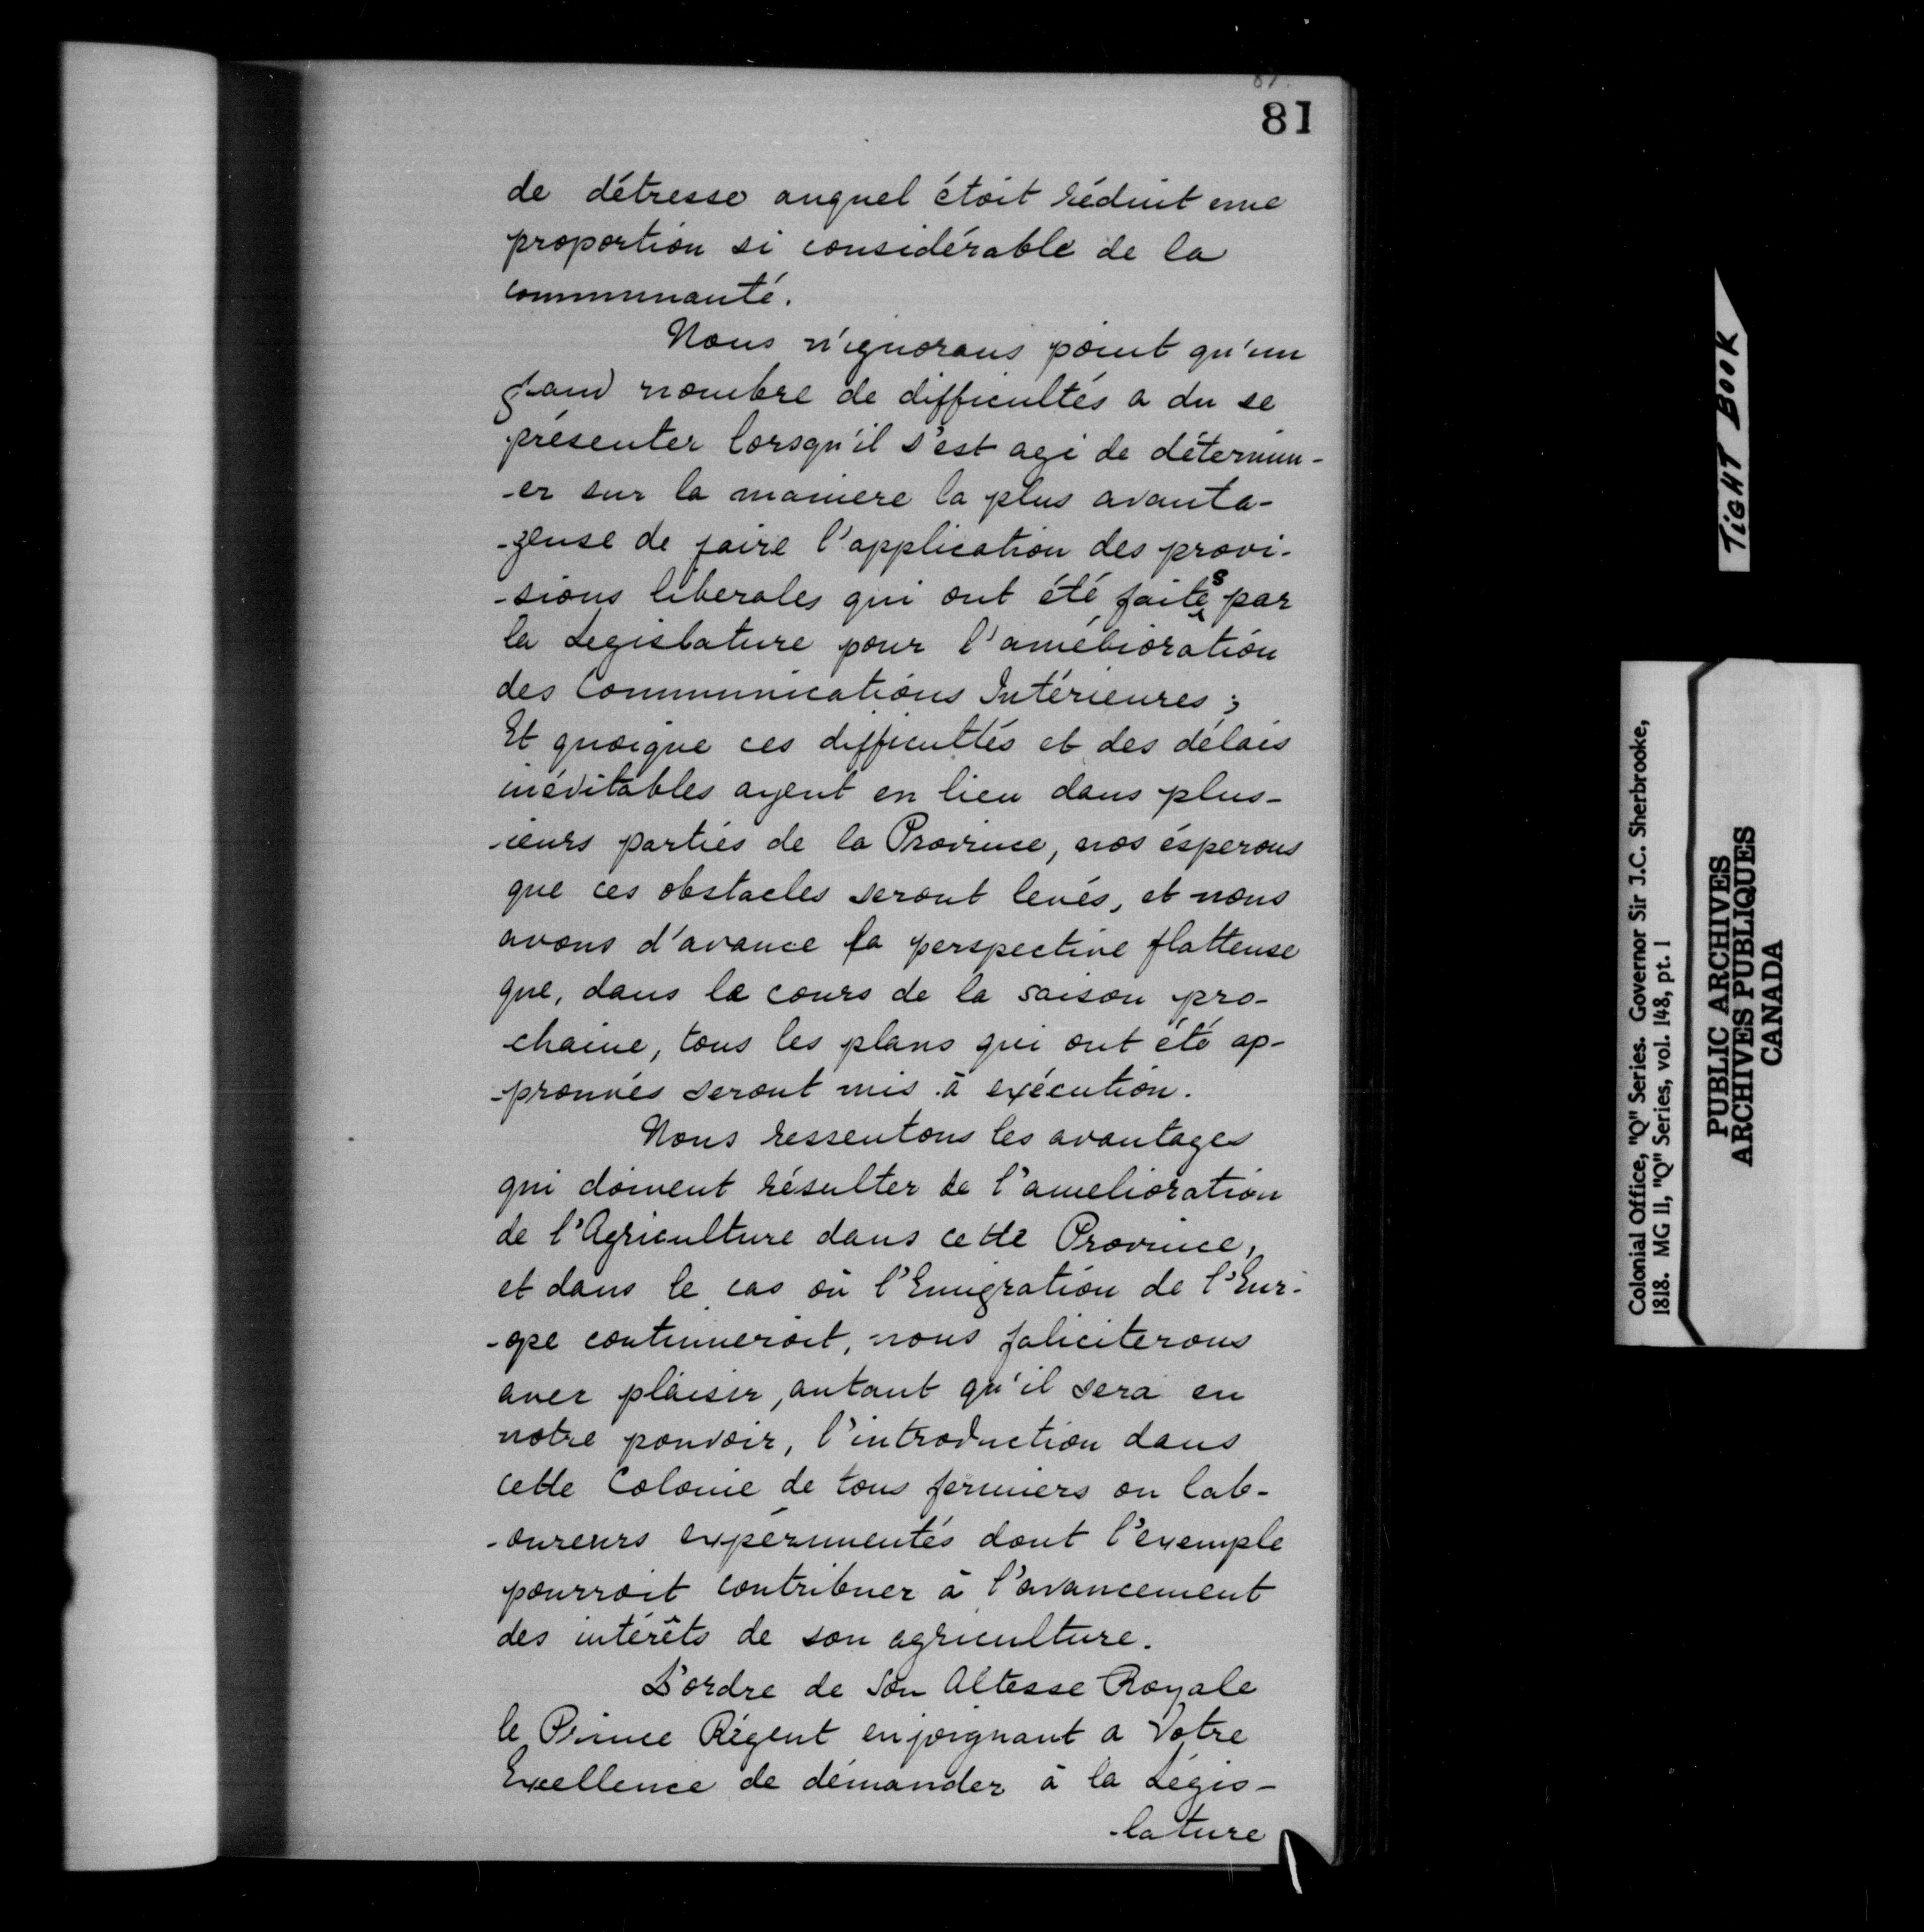 81
de détresse auquel étoit réduit une
proportion si considérable de la
communauté.
Nous n'ignorons point qu'un
grand nombre de difficultés a du se
présenter lorsqu'il s'est agi de détermin-
-er sur la maniere la plus avanta-
-geuse de faire l'application des provi-
-sions liberales qui ont été faites par
la Legislature pour l'amélioration
des Communications Intérieures;
Et quoique ces difficultés et des délais
inévitables ayent eu lieu dans plus-
-ieurs parties de la Province, nos éspérons
que ces obstacles seront levés, et nous
avons d'avance la perspective flatteuse
que, dans le cours de la saison pro-
-chaine, tous les plans qui ont été ap-
-prouvés seront mis à exécution.
Nous ressentons les avantages
qui doivent résulter de l'amelioration
de l'Agriculture dans cette Province,
et dans le cas où l'Emigration de l'Eur-
-ope continueroit, nous faliciterons
avec plaisir, autant qu'il sera en
notre pouvoir, l'introduction dans
cette Colonie de tous fermiers ou lab-
-oureurs expérimentés dont l'exemple
pourroit contribuer à l'avancement
des intérêts de son agriculture.
L'ordre de Son Altesse Royale
le Prince Régent enjoignant a Votre
Excellence de démander à la Légis-
-lature
TIGHT BOOK
Colonial Office, "Q" Series. Governor Sir J.C. Sherbrooke,
1818. MG 11, "Q" Series, vol. 148, pt. 1
PUBLIC ARCHIVES
ARCHIVES PUBLIQUES
CANADA